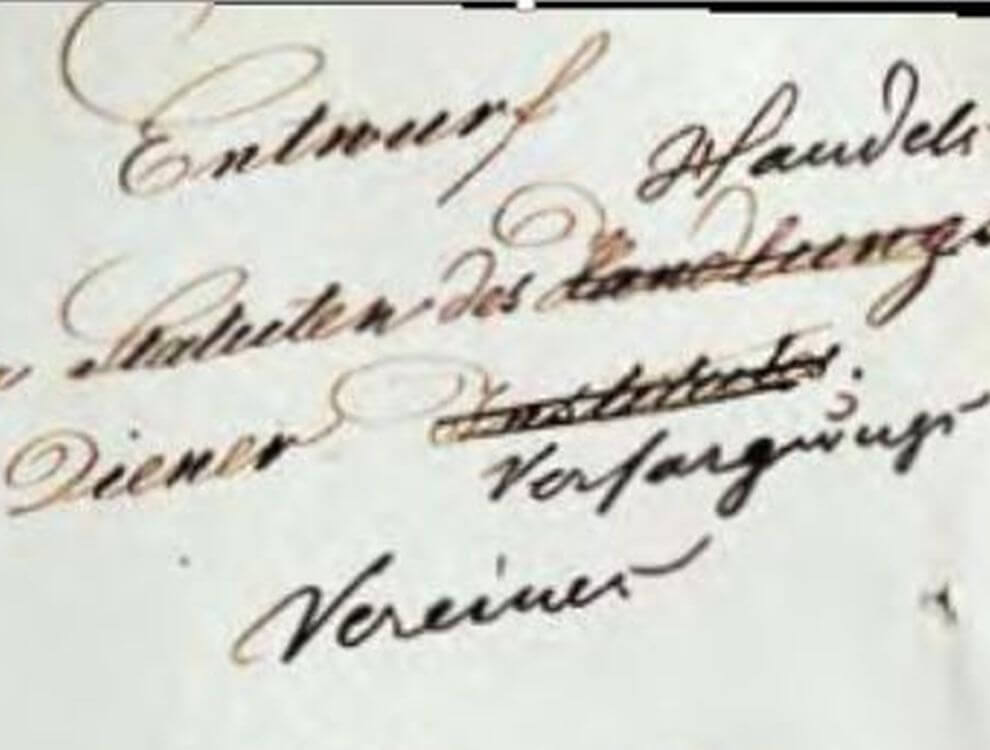 Entwurf
Handels
Statuten des Handlungs
Diener Instituts.
Versorgungs
Vereines